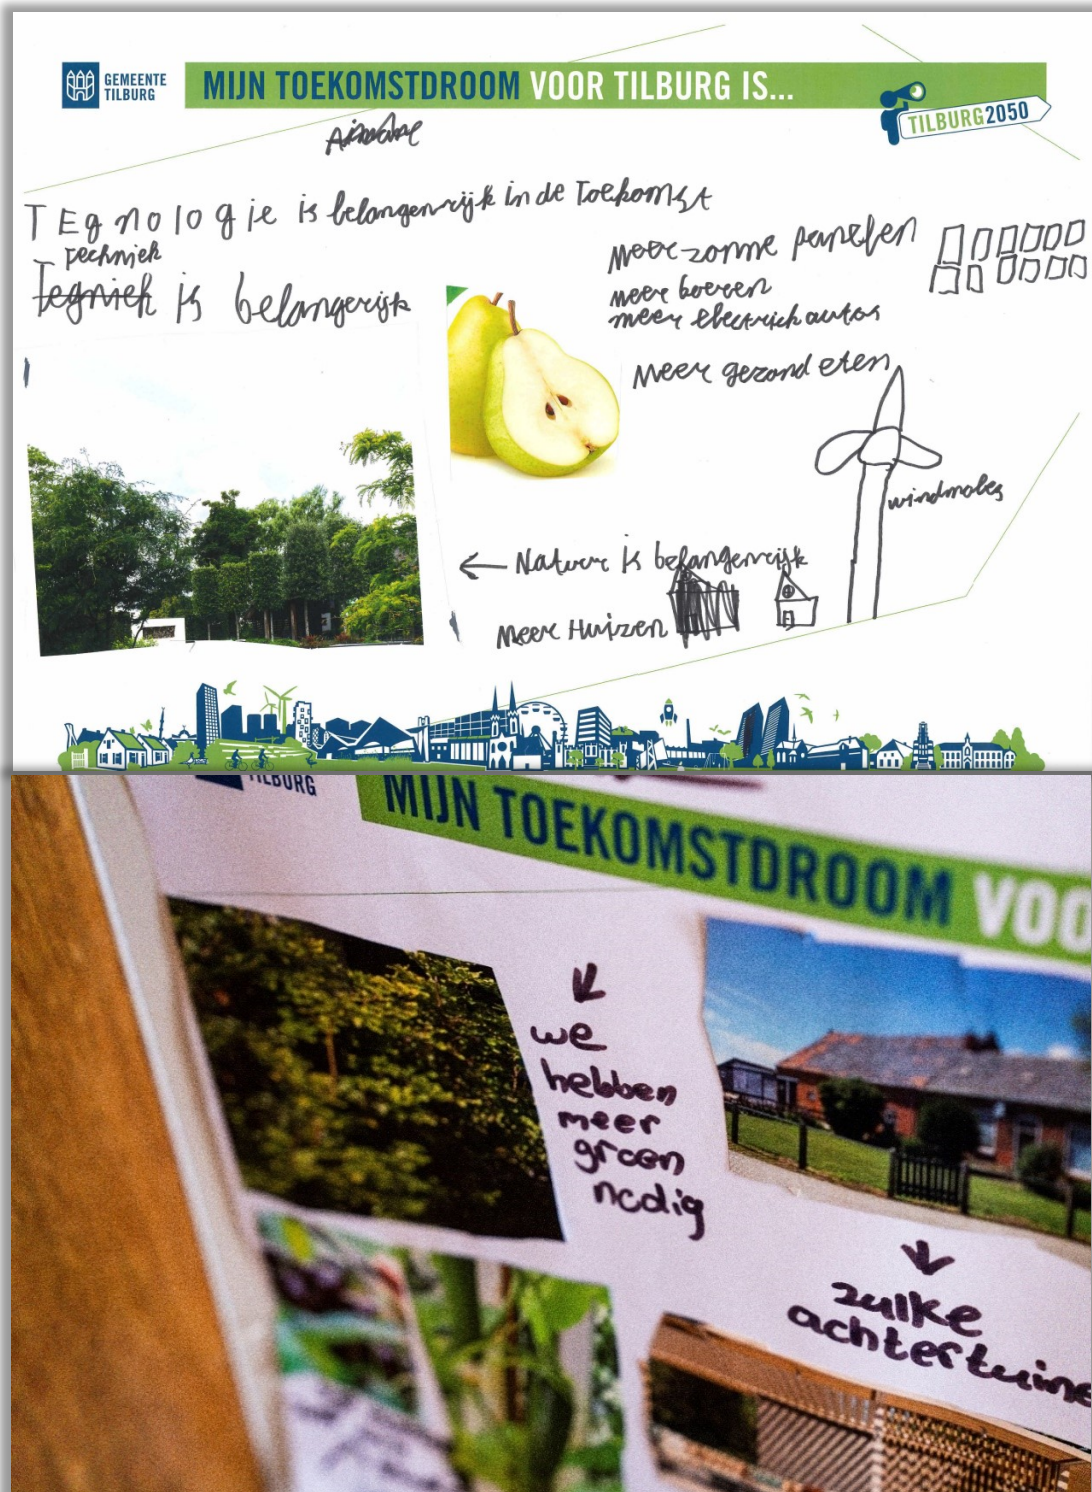 GEMEENTE
TILBURG
MIJN TOEKOMSTDROOM VOOR TILBURG IS...
TILBURG2050
TEgnologie is belangenrijk in de Toekomst
Techniek
Tegniek is belangerijk
Meer zonne panelen
meer boeren
meer electrich autos
Meer gezond eten
windmoles
← Natuur is belangenrijk
Meer Huizen
TILBURG
MIJN TOEKOMSTDROOM VOO
we
hebben
meer
groen
nodig
zulke
achtertuine